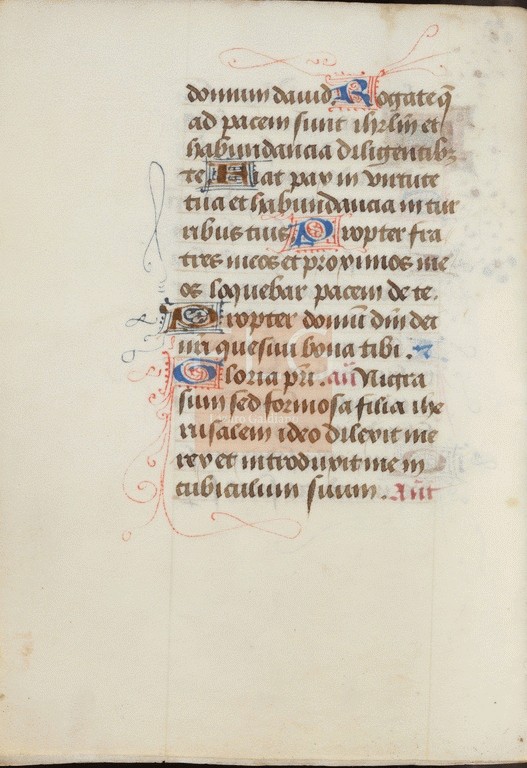 domum dauid Rogate q̃
ad pacem sunt ihrlm̄ et
habundancia diligentibz
te Fiat pax in virtute
tua et habundancia in tur
ribus tuis Propter fra
tres meos et proximos me
os loquebar pacem de te.
Propter domū dm̄ dei
nr̄i quesiui bona tibi.
Gloria pr̄i. an̄ Nigra
sum sed formosa filia ihe
rusalem ideo dilexit me
rex et introduxit me in
cubiculum suum. Ant̄
Lázaro Galdiano